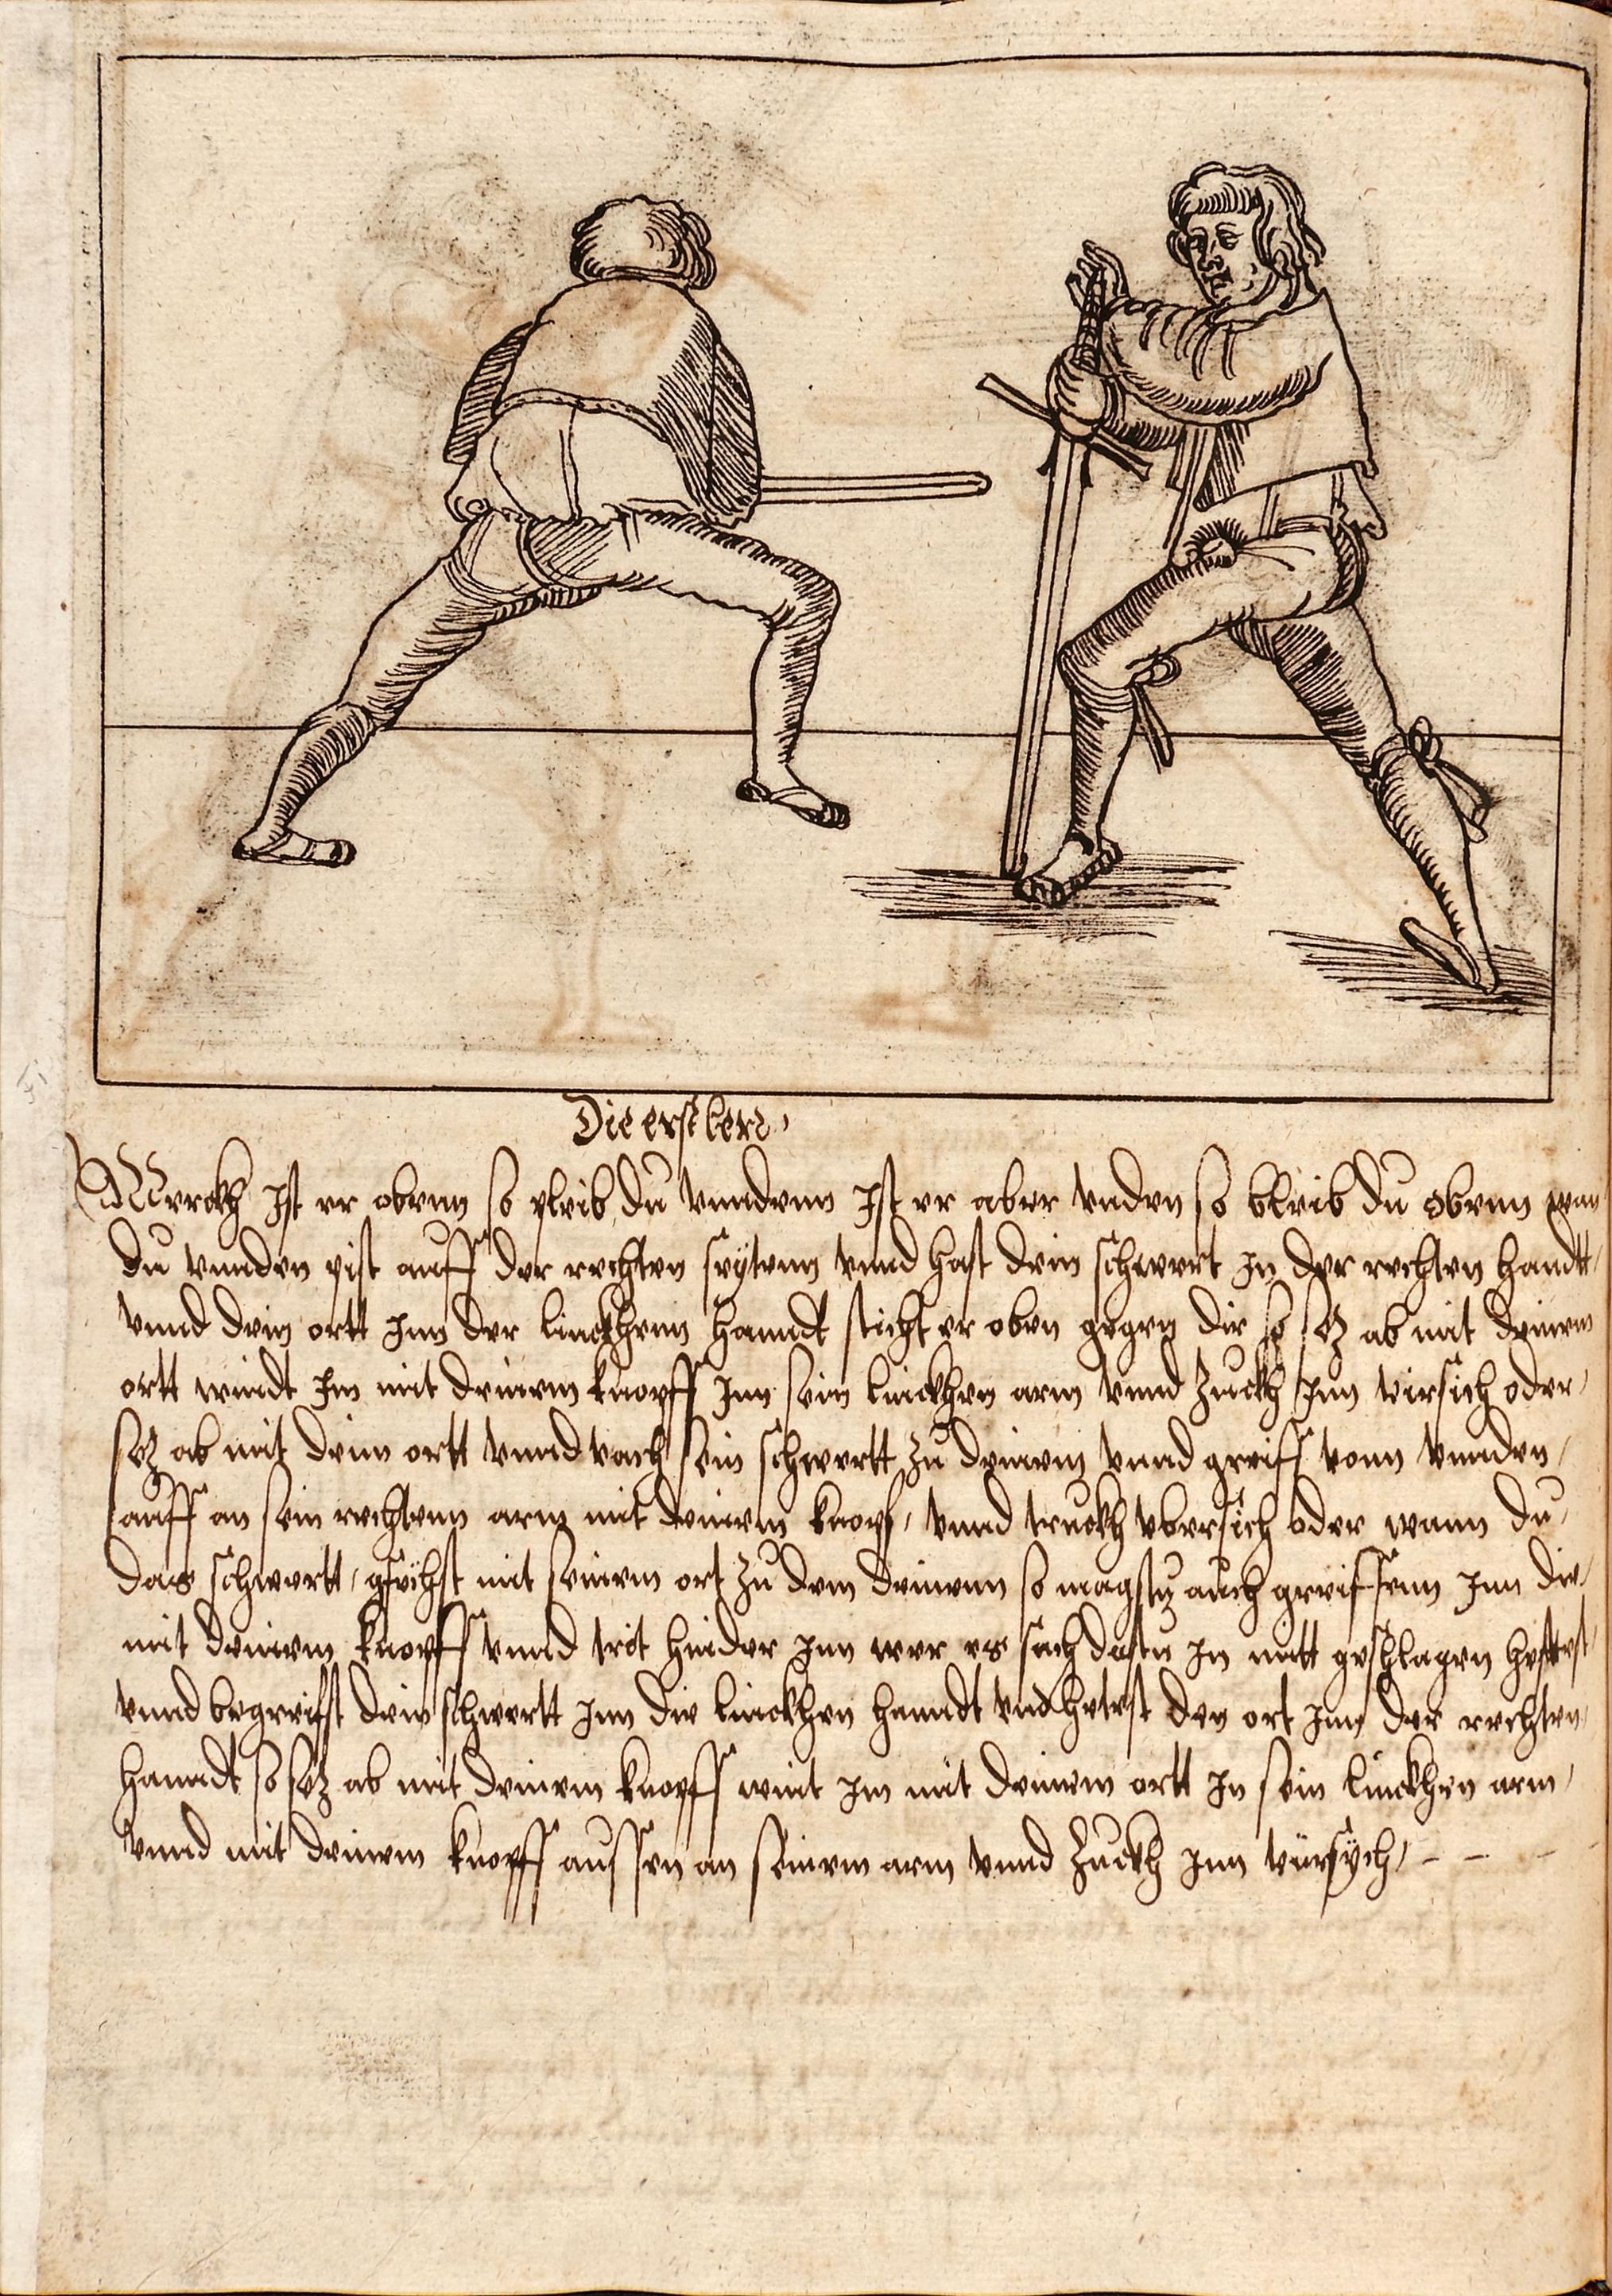 Die erst lere
Merckh Ist er obenn so pleib du vnndenn Ist er aber vnden so bleib du obenn wan
du vnnden pist auff der rechten seÿtenn vnnd hast dein schwert In der rechten handt
vnnd dein ortt Inn der linckhenn hanndt sticht er oben gegen dir so sez ab mit deinem
ortt windt Im mit deinem knopff Inn sein linckhen arm vnnd Zuckh Inn virsich oder
sez ab mit deim ortt vnnd vach sein schwertt zu deinem vnnd greiff vonn vnnden
auff an sein rechtenn arm mit deinem knopf vnnd truckh vbersich oder wann du
das schwertt gfechst mit seinem ort zu dem deinenn so magstu auch greiffenn Inn die
mit deinem knopff vnnd trit hinder Inn wer es sach dastu In nitt geschlagen hettest
vnnd begreifst dein schwertt Inn die linckhen hanndt vnd hetest den ort Inn der rechten
hanndt so sez ab mit deinem knopff wint Im mit deinem ortt In sein linckhen arm
vnnd mit deinem knopff aussen an seinem arm vnnd Zuckh Inn vürsÿch